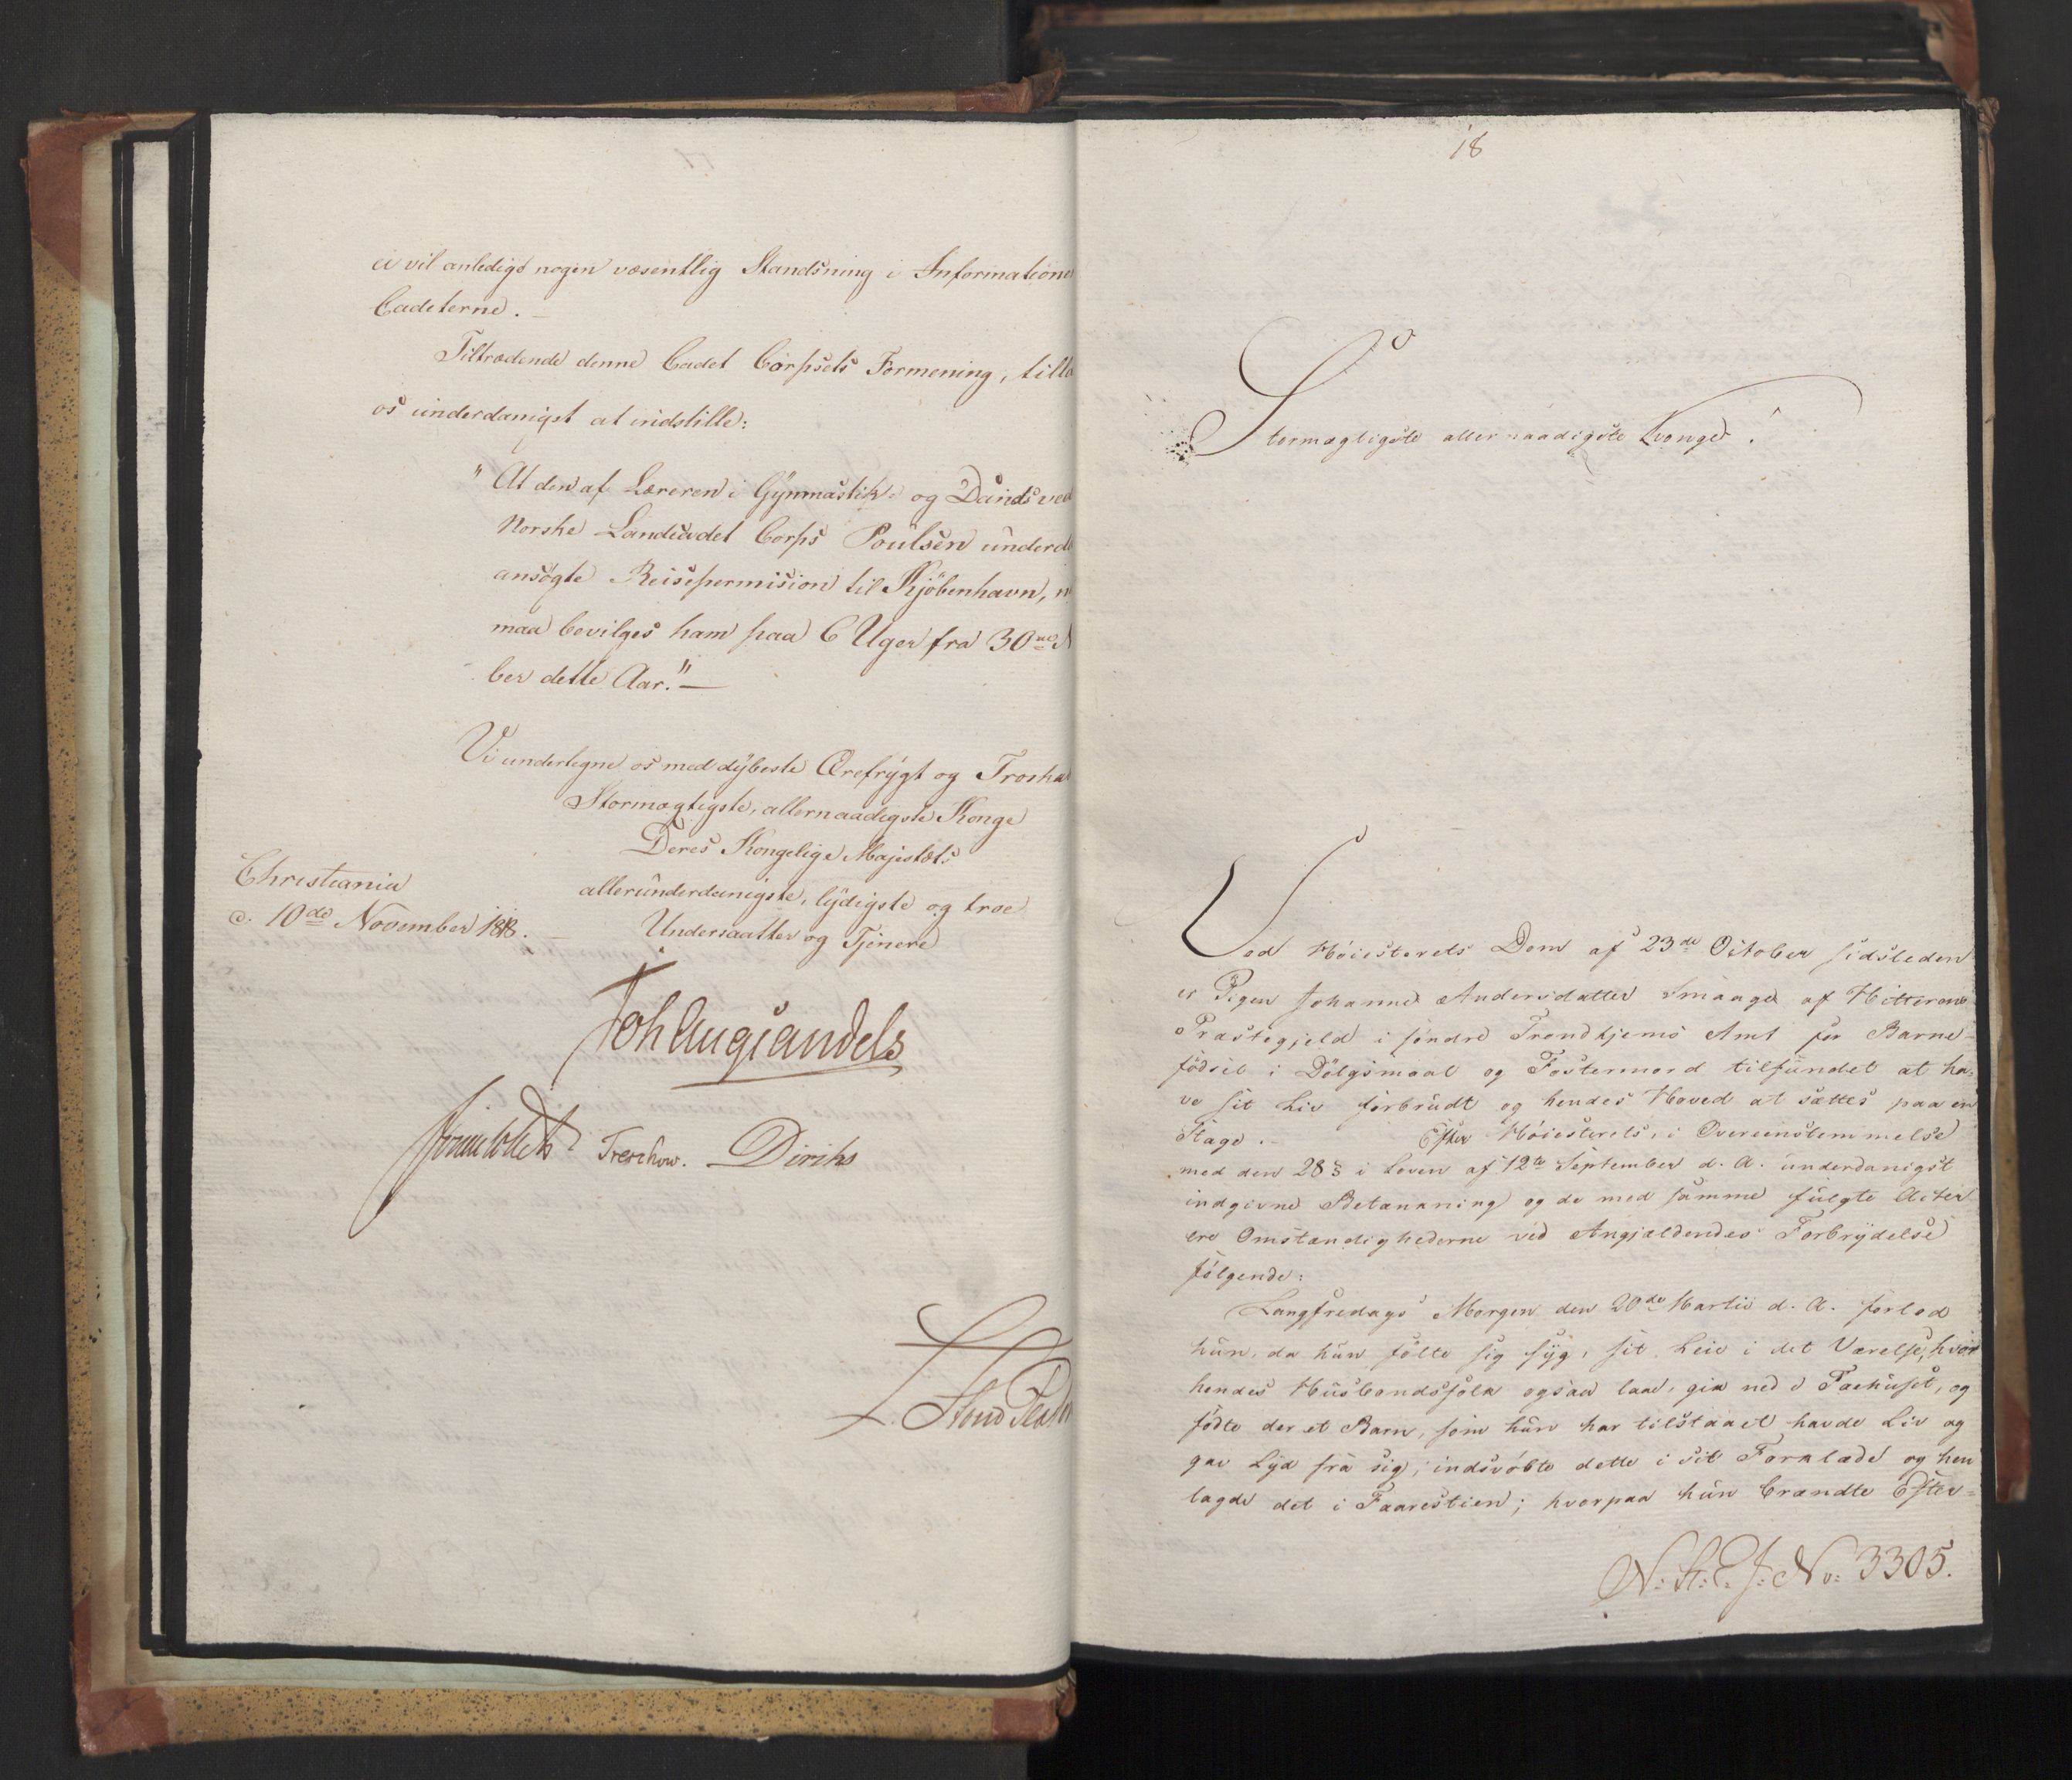 ei vil anledige nogen væsentlig Standsning i Informatione
Cadeterne. -
Tiltrædende denne Cadet Corpsets Formening, tilla
os underdanigst at indstille:
"At den af Læreren i Gymnastik- og Dands ved
Norske Landcadet Corps Poulsen underd
ansøgte Reisepermision til Kjøbenhavn, n
maa bevilges ham paa 6 Uger fra 30te N
ber dette Aar." -
Vi undertegne os med dybeste Ærefrygt og Troska
Stormægtigste, allernaadigste Konge
Deres Kongelige Majestæts
allerunderdanigste, lydigste og troe
Undersaatter og Tjenere
Christiania
d. 10de November 1818. -
Joh Aug Sandels
Sommerhielm Treschow. Diriks
18
Stormægtigste allernaadigste Konge!
Ved Høiesterets Dom af 23de October sidstleden
er Pigen Johanne Andersdatter Smaage af Hitterens
Præstegjeld i søndre Trondhjems Amt for Barne-
fødsel i Dølgsmaal og Fostermord tilfundet at ha-
ve sit Liv forbrudt og hendes Hoved at sættes paa en
Stage. - Efter Høiesterets, i Overeenstemmelse
med den 28 § i Loven af 12te September d. A. underdanigst
indgivne Betænkning og de med samme fulgte Acter
ere Omstændighederne ved Angjældendes Forbrydelse
følgende:
Langfredags Morgen den 20de Martii d. A. forlod
hun, da hun følte sig syg, sit Leie i det Værelse, hvor
hendes Huusbondsfolk ogsaa laae, gik ned i Faehuset, og
fødte der et Barn, som hun har tilstaaet havde Liv og
gav Lyd fra sig; indsvøbte dette i sit Forklæde og hen
lagde det i Faarestien; hvorpaa hun brændte Efter-
N: St: E: J: No: 3305.